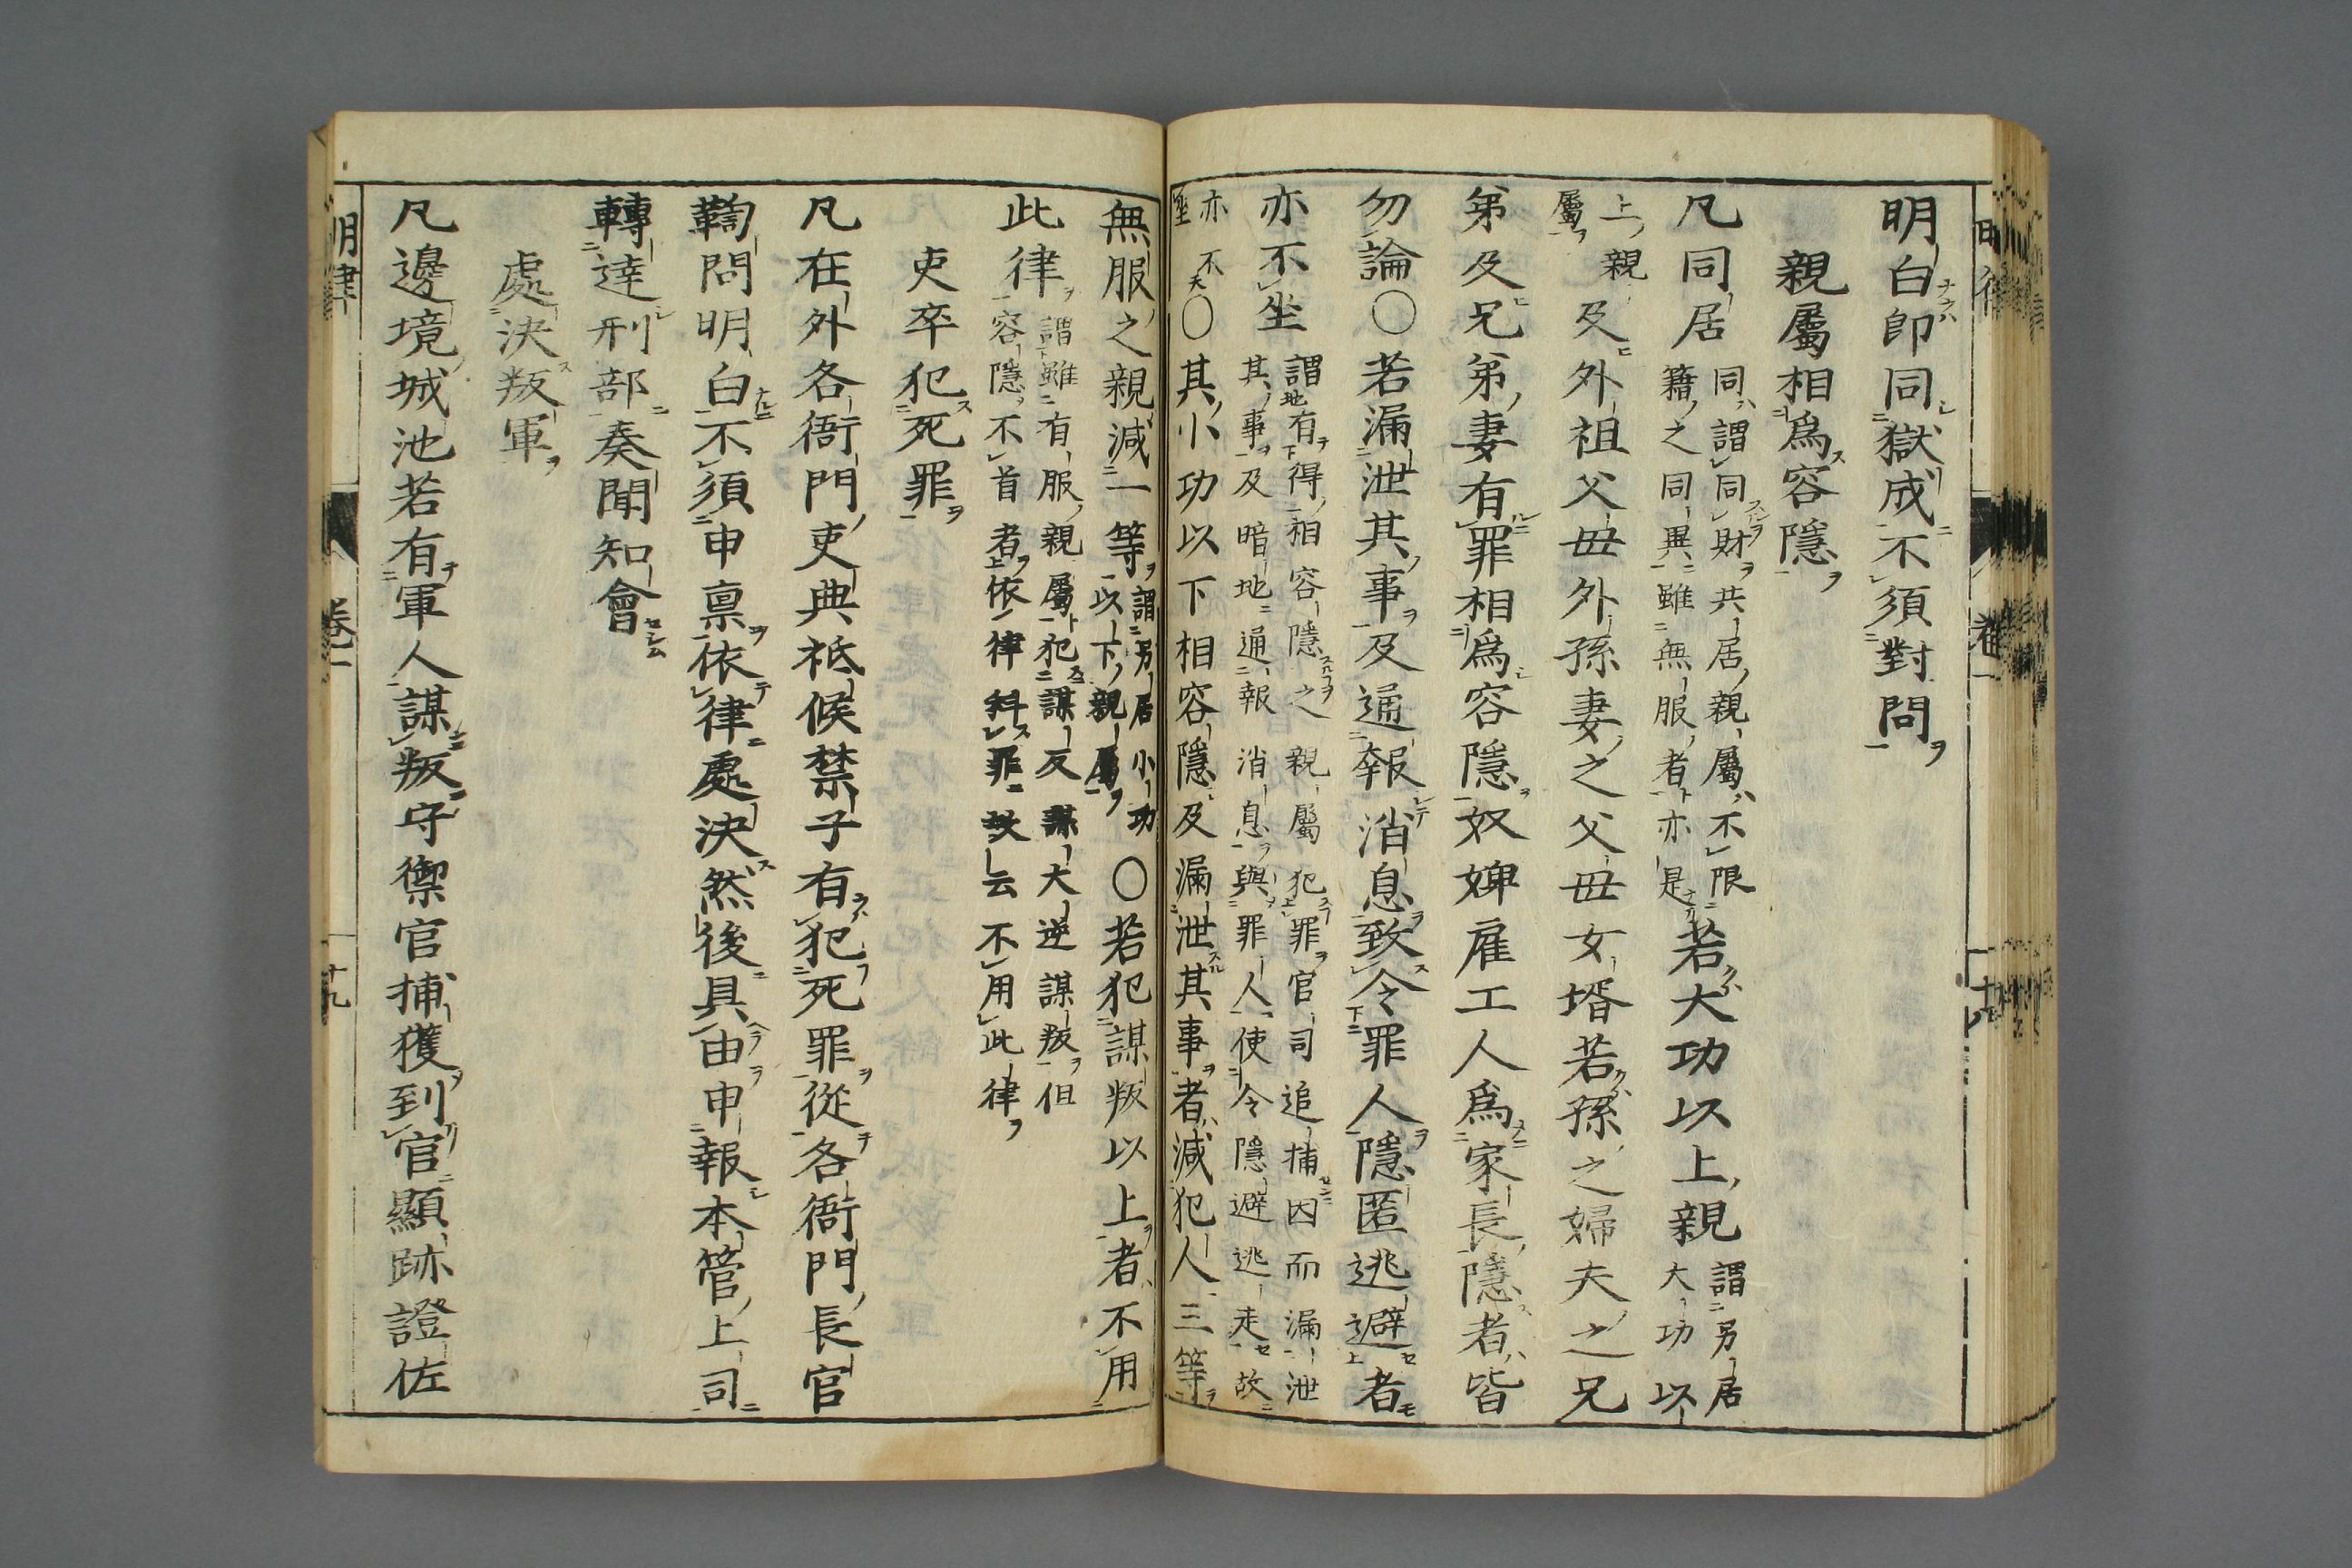 明白卽同獄成不須對問
親屬相爲容隱
凡同居同謂同財共居親屬不限
籍之同異雖無服者亦是若大功以上親謂另居
大功以
上親
屬及外祖父母外孫妻之父母女壻若孫之婦夫之兄
弟及兄弟妻有罪相爲容隱奴婢雇工人爲家長隱者皆
勿論〇若漏泄其事及通報消息致令罪人隱匿逃避者
亦不坐謂有得相容隱之親屬犯罪官司追捕因而漏泄
其事及暗地通報消息與罪人使令隱避逃走故
亦不
坐〇其小功以下相容隱及漏泄其事者減犯人三等
無服之親減一等謂另居小功
以下親屬〇若犯謀叛以上者不用
此律謂雖有服親屬犯謀反謀大逆謀叛但
容隱不首者依律科罪故云不用此律
吏卒犯死罪
凡在外各衙門吏典祗候禁子有犯死罪從各衙門長官
鞫問明白不須申禀依律處決然後具由申報本管上司
轉達刑部奏聞知會
處決叛軍
凡邊境城池若有軍人謀叛守禦官捕獲到官顯跡證佐
明律
卷一
十九